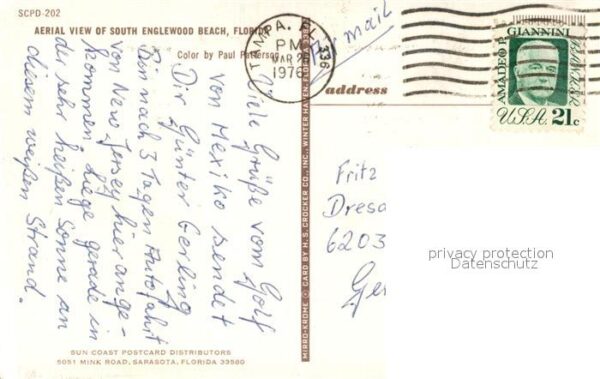 SCPD-202
AERIAL VIEW OF SOUTH ENGLEWOOD BEACH, FLORIDA
Color by Paul Patterson
Viele Grüße vom Golf
von Mexiko sendet
Dir Günter Gerling
Bin nach 3 Tagen Autofahrt
von New Jersey hier ange-
kommen. Liege gerade in
der sehr heißen Sonne an
diesem weißen Strand.
SUN COAST POSTCARD DISTRIBUTORS
5051 MINK ROAD, SARASOTA, FLORIDA 33580
MIRRO-KROME ® CARD BY H. S. CROCKER CO., INC., WINTER HAVEN,
TAMPA, FL 336
PM
MAR 26
1976
Airmail
address
AMADEO P. GIANNINI
BANKER
U.S.A. 21c
Fritz
Dresd
6203
Ger
privacy protection
Datenschutz